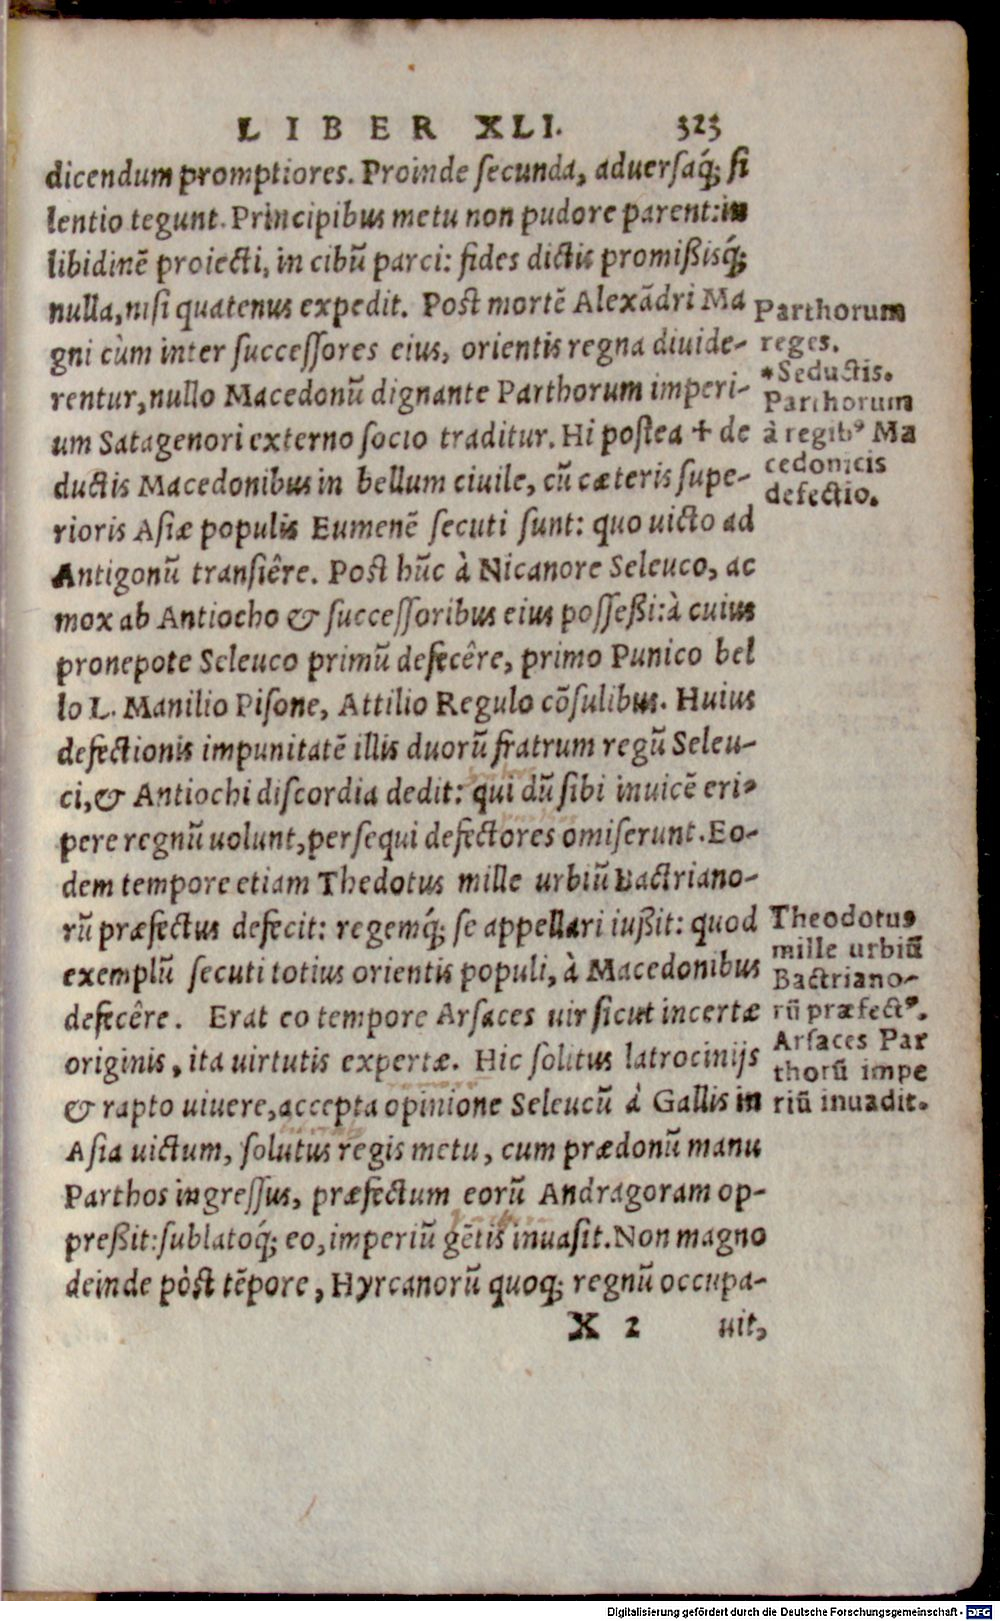 LIBER XLI. 323
dicendum promptiores. Proinde ſecunda, aduerſaq́; ſi
lentio tegunt. Principibus metu non pudore parent: in
libidinẽ proiecti, in cibũ parci: fides dictis promißisq́;
nulla, niſi quatenus expedit. Poſt mortẽ Alexãdri Ma
gni cùm inter ſucceſſores eius, orientis regna diuide-
rentur, nullo Macedonũ dignante Parthorum imperi-
um Satagenori externo ſocio traditur. Hi poſtea + de
ductis Macedonibus in bellum ciuile, cũ cæteris ſupe-
rioris Aſiæ populis Eumenẽ ſecuti ſunt: quo uicto ad
Antigonũ tranſiêre. Poſt hũc à Nicanore Seleuco, ac
mox ab Antiocho & ſucceſſoribus eius poſſeßi: à cuius
pronepote Seleuco primũ defecêre, primo Punico bel
lo L. Manilio Piſone, Attilio Regulo cõſulibus. Huius
defectionis impunitatẽ illis duorũ fratrum regũ Seleu-
ci, & Antiochi diſcordia dedit: qui dũ ſibi inuicẽ eri-
pere regnũ uolunt, perſequi defectores omiſerunt. Eo-
dem tempore etiam Thedotus mille urbiũ Bactriano-
rũ præfectus defecit: regemq́; ſe appellari iußit: quod
exemplũ ſecuti totius orientis populi, à Macedonibus
defecêre. Erat eo tempore Arſaces uir ſicut incertæ
originis, ita uirtutis expertæ. Hic ſolitus latrocinijs
& rapto uiuere, accepta opinione Seleucũ à Gallis in
Aſia uictum, ſolutus regis metu, cum prædonũ manu
Parthos ingreſſus, præfectum eorũ Andragoram op-
preßit: ſublatoq́; eo, imperiũ gẽtis inuaſit. Non magno
deinde pòſt tẽpore, Hyrcanorũ quoq; regnũ occupa-
X 2 uit,
Parthorum
reges.
*Seductis.
Parthorum
à regibꝰ Ma
cedonicis
defectio.
Theodotus
mille urbiũ
Bactriano-
rũ præfectꝰ.
Arſaces Par
thorũ impe
riũ inuadit.
Digitalisierung gefördert durch die Deutsche Forschungsgemeinschaft - DFG